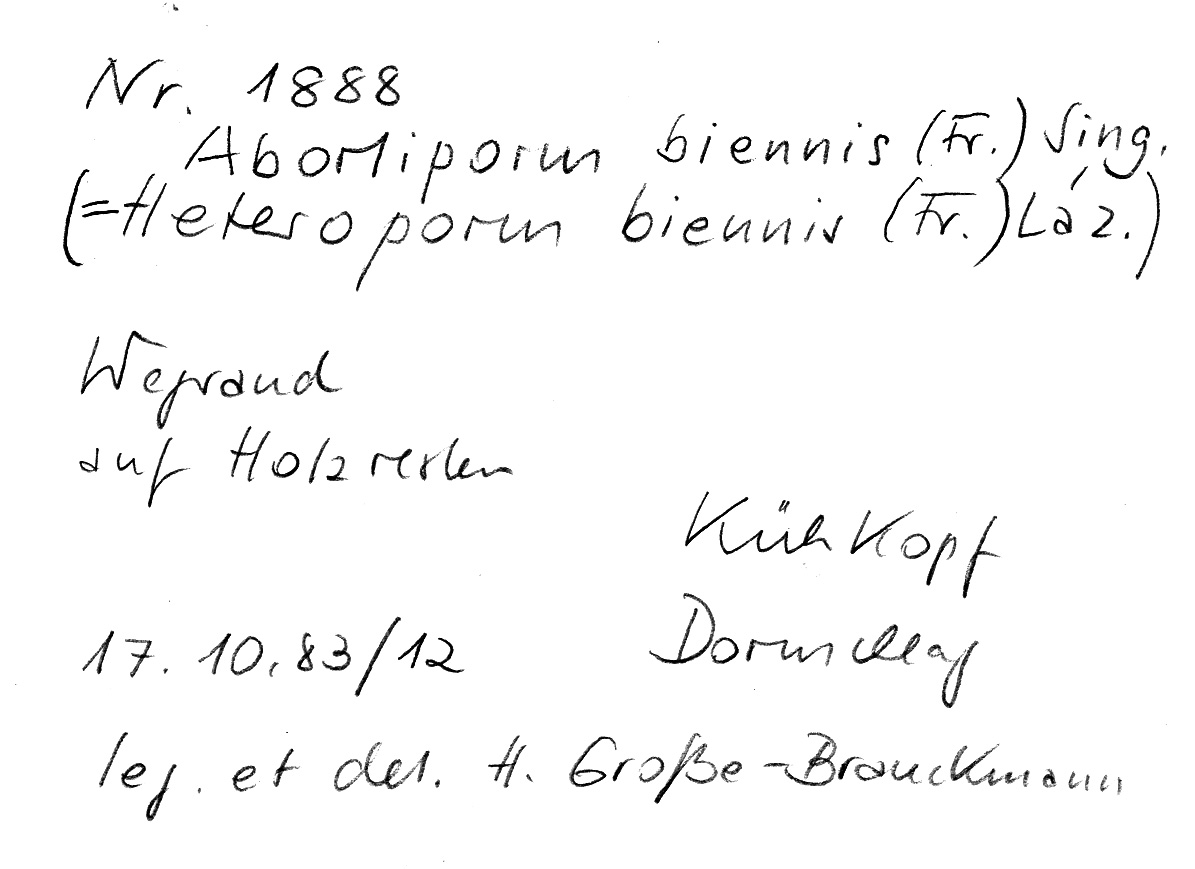 Nr. 1888
Abortiporus biennis (Fr.) Sing.
(=Heteroporus biennis (Fr.) Láz.)
Wegrand
auf Holzresten
Kühkopf
Dornschlag
17.10.83/12
leg. et det. H. Große-Brauckmann